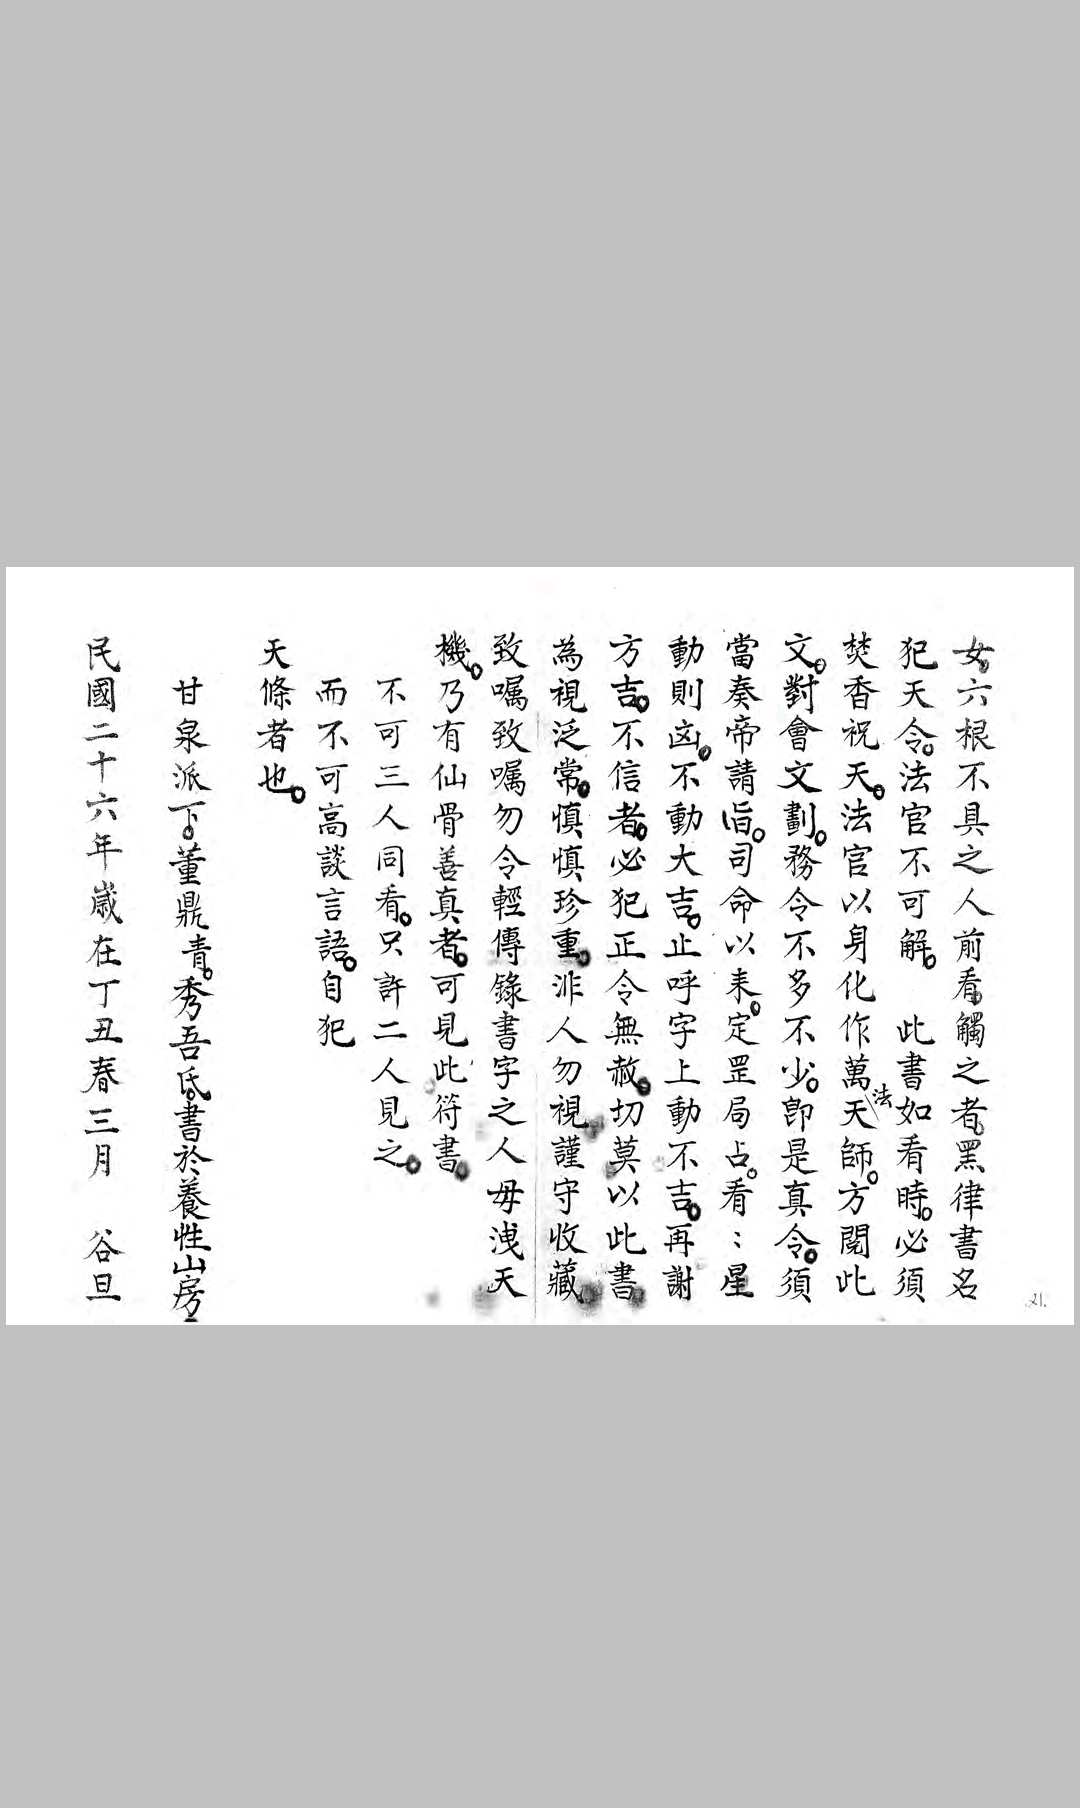 女。六根不具之人前看。觸之者。黑律書名
犯天令。法官不可解。 此書如看時。必須
焚香祝天。法官以身化作萬法天師。方閱此
文。對會文劃。務令不多不少。即是真令。須
當奏帝請旨。司命以来。定罡局占。看：星
動則凶。不動大吉。止呼字上動不吉。再謝
方吉。不信者。必犯正令無赦。切莫以此書
為視泛常。慎慎珍重。非人勿視謹守收藏
致嘱致嘱勿令輕傳錄書字之人毋洩天
機。乃有仙骨善真者。可見此符書。
不可三人同看。只許二人見之。
而不可高談言語。自犯
天條者也。
甘泉派下。董鼎青。秀吾氏。書於養性山房
民國二十六年歲在丁丑春三月 谷旦
21.